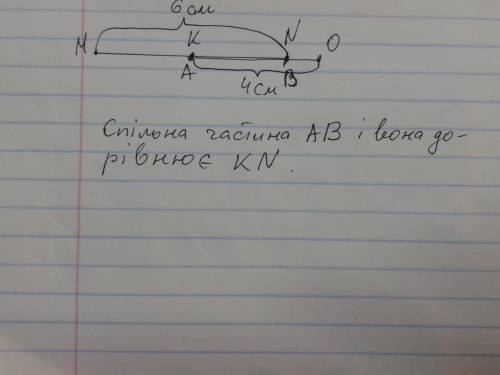 6 см
M K N O
A B
4 см
Спільна частина AB і вона до-
рівнює KN.